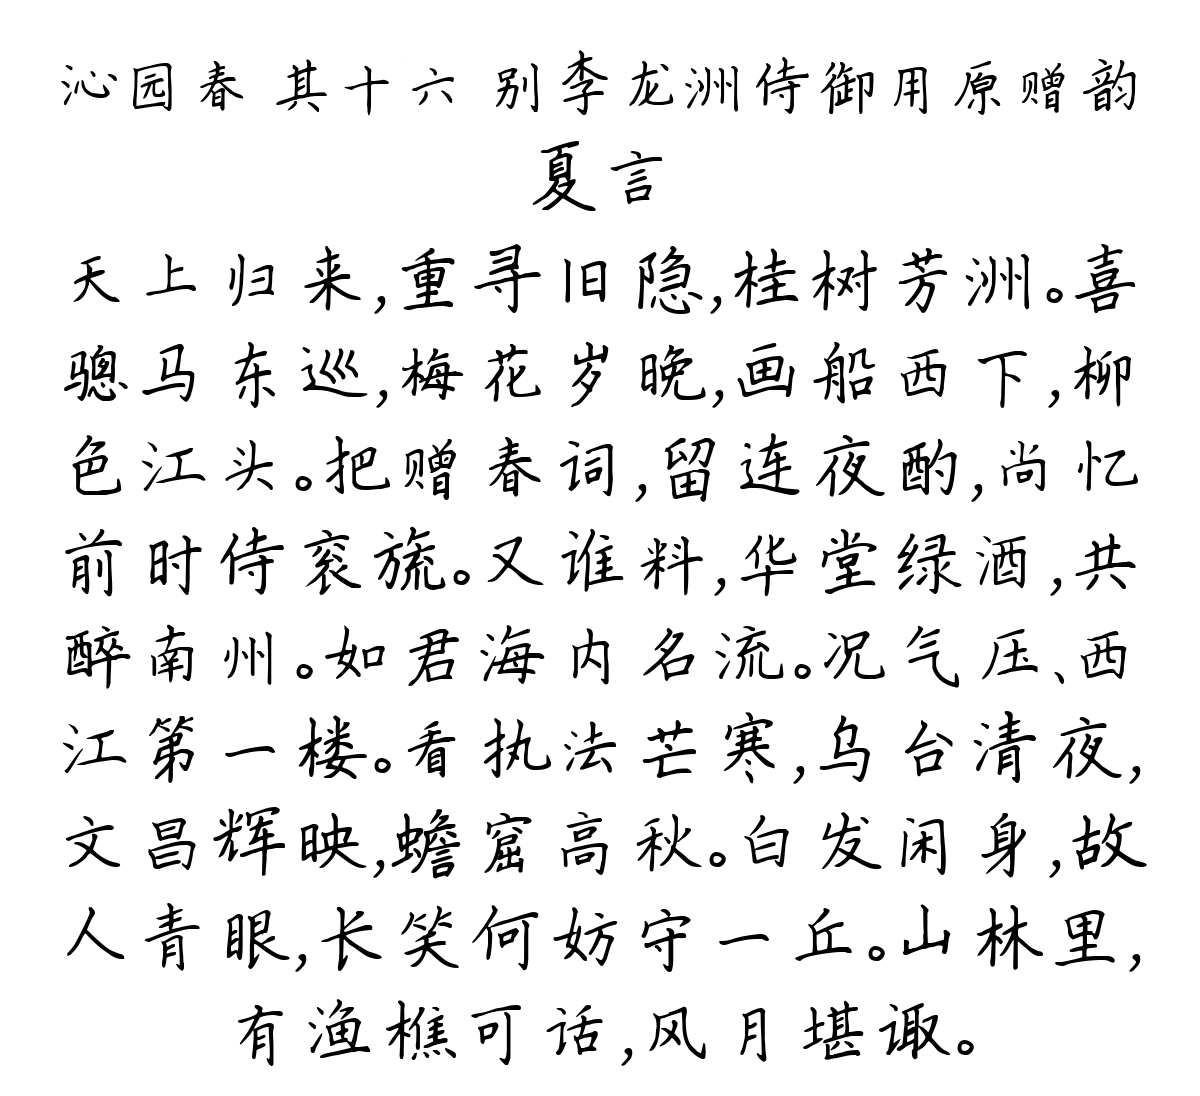 沁园春 其十六 别李龙洲侍御用原赠韵
夏言
天上归来,重寻旧隐,桂树芳洲。喜
骢马东巡,梅花岁晚,画船西下,柳
色江头。把赠春词,留连夜酌,尚忆
前时侍衮旒。又谁料,华堂绿酒,共
醉南州。如君海内名流。况气压、西
江第一楼。看执法芒寒,乌台清夜,
文昌辉映,蟾窟高秋。白发闲身,故
人青眼,长笑何妨守一丘。山林里,
有渔樵可话,风月堪诹。